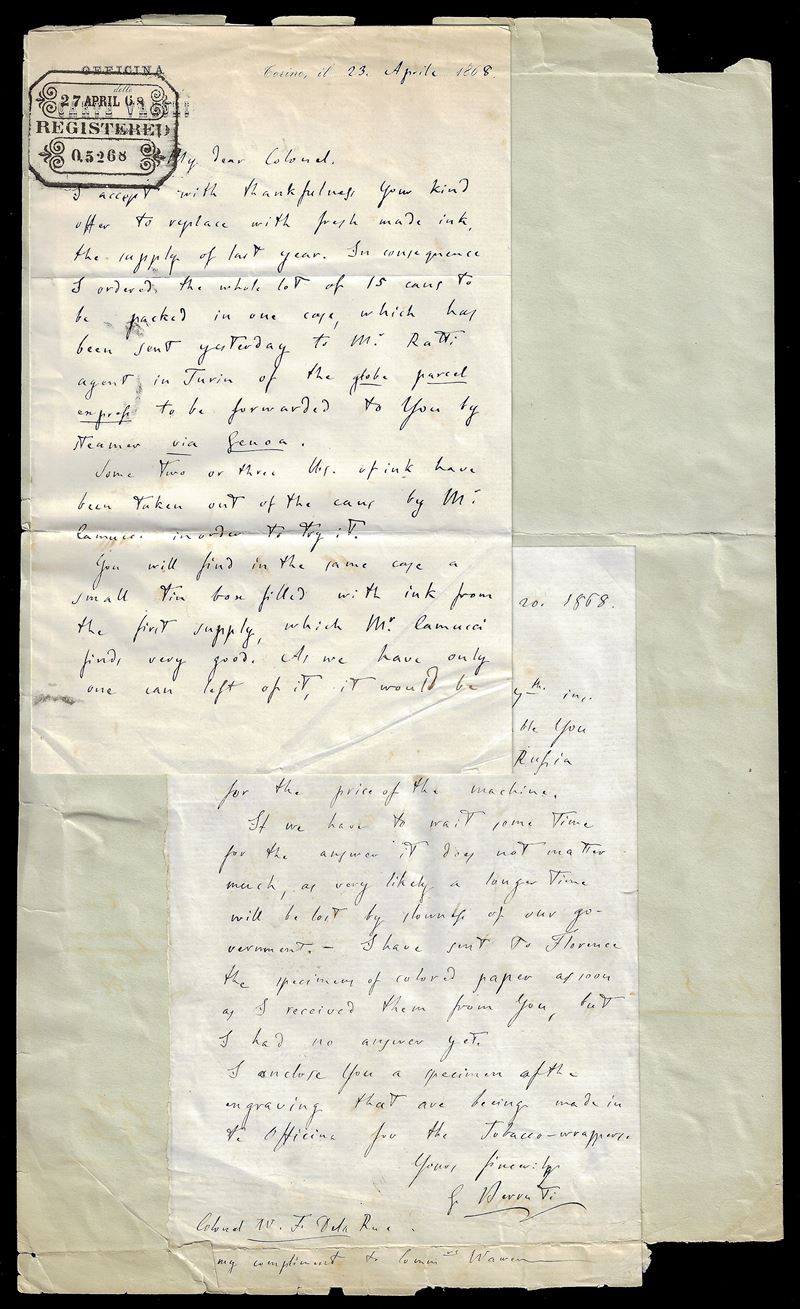 OFFICINA
delle
CARTE VALORI
27 APRIL 68
REGISTERED
0.5268
Torino, il 23. Aprile 1868.
My dear Colonel.
I accept with thankfulness Your kind
offer to replace with fresh made ink,
the supply of last year. In consequence
I ordered the whole lot of 15 cans to
be packed in one case, which has
been sent yesterday to Mr. Ratti
agent in Turin of the globe parcel
express to be forwarded to You by
steamer via Genoa.
Some two or three lbs. of ink have
been taken out of the cans by Mr.
Camucci in order to try it.
You will find in the same case a
small tin box filled with ink from
the first supply, which Mr. Camucci
finds very good. As we have only
one can left of it, it would be
20. 1868.
th. ins.
ble You
Russia
for the price of the machine.
If we have to wait some time
for the answer it does not matter
much, as very likely a longer time
will be lost by slowness of our go-
vernment. – I have sent to Florence
the specimens of colored paper as soon
as I received them from You, but
I had no answer yet.
I enclose You a specimen of the
engraving that are beeing made in
te Officina for the Tobacco-wrappers
Yours sincerily
Colonel W. F. De la Rue.
my compliment to